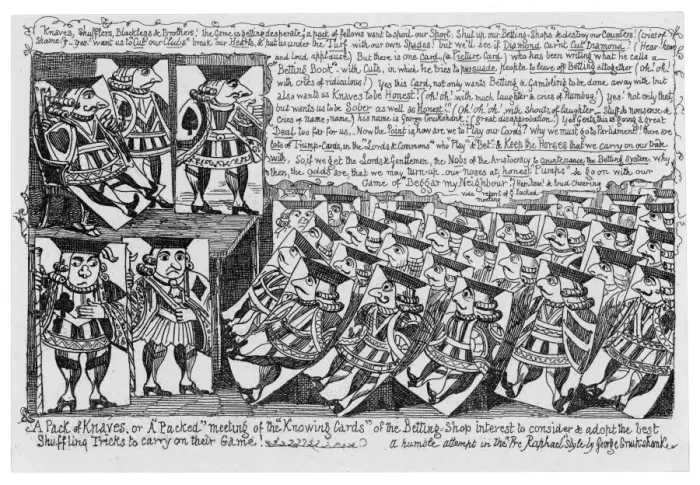 "Knaves, Shufflers, Blacklegs & Brothers! the Game is getting desperate! a pack of fellows want to spoil our Sport, Shut up our "Betting-Shops" & destroy our Counters! (cries of
Shame!) – yes! want us to Cut our Clubs" break our Hearts, & put us under the Turf with our own Spades! but we'll see if Diamond can't Cut Diamond! (Hear! hear!
and loud applause) But there is one Card, (a Picture Card) who has been writing what he calls a
"Betting Book" – with Cuts, in which he tries to persuade, people to leave off Betting altogether (oh! oh!
with cries of ridiculous!) Yes this Card, not only wants Betting & Gambling to be done away with, but
also wants us Knaves to be Honest! (oh! oh! with much laughter & cries of Humbug) yes! not only that,
but wants us to be Sober as well as Honest!! (oh! oh! oh! with shouts of laughter – Stuff & nonsense &
cries of name, name,) his name is George Cruikshank! (great disapprobation) Yes Gents this is going a great
"Deal too far for us, Now the Point is how are we to Play our Cards? Why we must go to Parliament!! there are
lots of Trump-Cards, in the "Lords & Commons" who Play" & Bet" & Keep the Horses that we carry on our trade
with, So, if we get the Lords & Gentlemen, the Nobs of the Aristocracy to countenance the Betting System, why,
then, the odds are that we may turn-up – our noses at, honest "Pumps" & go on with our
Game of Beggar my Neighbour"! (Hear! hear! & loud cheering
vide "report of ye Packed
meeting
A Pack of Knaves, or A "Packed" meeting of the "Knowing Cards" of the Betting-Shop interest to consider & adopt the best
Shuffling Tricks to carry on their Game! a humble attempt in the "Pre Raphael" Style by George Cruikshank